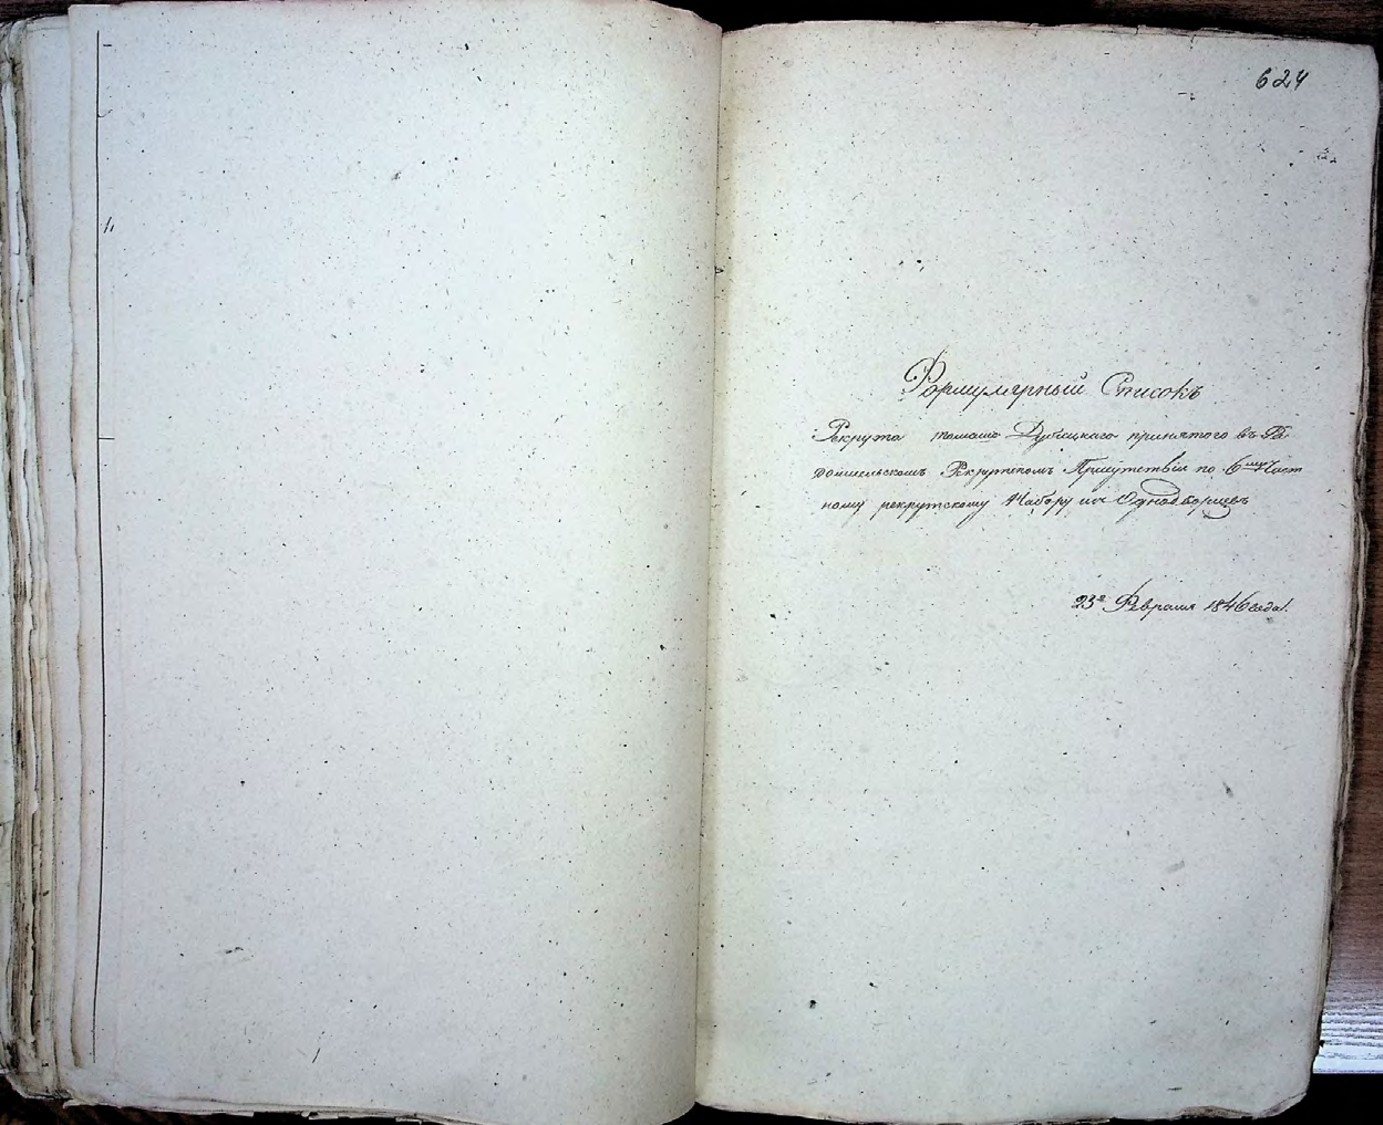 624
Формулярный Списокъ
Рекрута Томаша Дубецкаго принятого въ Ра
домысльскомъ Рекрутскомъ Присутствіи по 6му Част
ному рекрутскому Набору изъ Однодворцевъ
23го Февраля 1846 года.